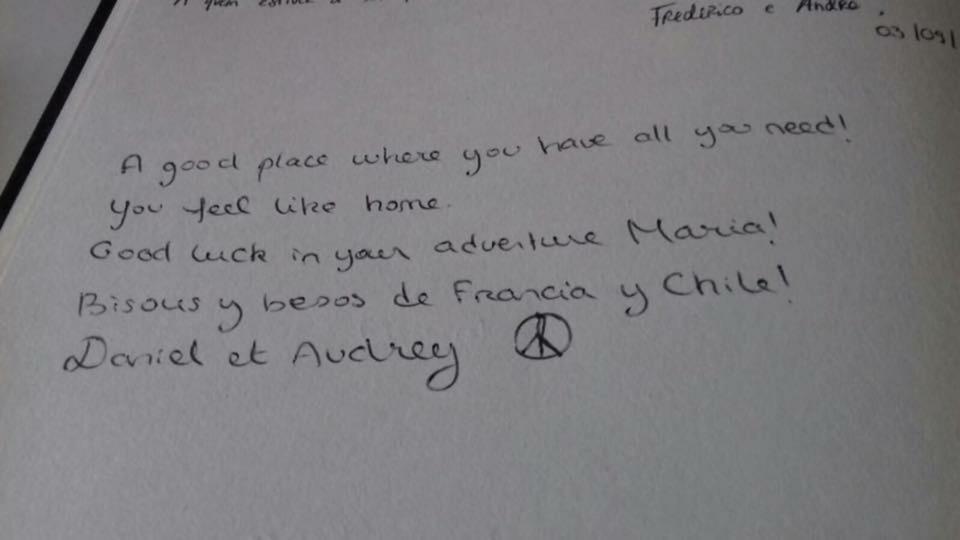 A quem
Frederico e André.
03/09/
A good place where you have all you need!
You feel like home.
Good luck in your adventure Maria!
Bisous y besos de Francia y Chile!
Daniel et Audrey